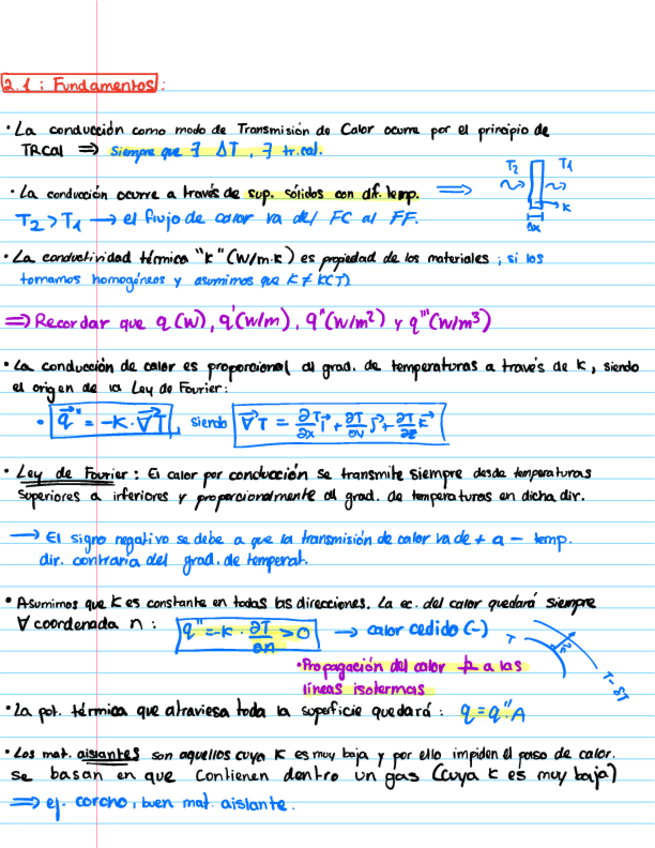 2.1: Fundamentos:
· La conducción como modo de Transmisión de Calor ocurre por el principio de
TRCal ⇒ Siempre que ∃ ΔT, ∃ tr.cal.
T₂ T₁
· La conducción ocurre a través de sup. sólidos con dif. temp. ⇒
K
T₂ > T₁ → el flujo de calor va del FC al FF.
Δx
· La conductividad térmica "k" (W/m·K) es propiedad de los materiales; si los
tomamos homogéneos y asumimos que K ≠ K(T)
⇒ Recordar que q (W), q' (W/m), q'' (W/m²) y q''' (W/m³)
· La conducción de calor es proporcional al grad. de temperaturas a través de K, siendo
el origen de la Ley de Fourier:
· q⃗'' = -K · ∇⃗T, siendo ∇⃗T = ∂T/∂x i⃗ + ∂T/∂y j⃗ + ∂T/∂z k⃗
· Ley de Fourier: El calor por conducción se transmite siempre desde temperaturas
superiores a inferiores y proporcionalmente al grad. de temperaturas en dicha dir.
→ El signo negativo se debe a que la transmisión de calor va de + a - temp.
dir. contraria del grad. de temperat.
· Asumimos que K es constante en todas las direcciones. La ec. del calor quedará siempre
∀ coordenada n: q'' = -K · ∂T/∂n > 0 → calor cedido (-)
T n⃗
T - δT
· Propagación del calor ⊥ a las
líneas isotermas
· La pot. térmica que atraviesa toda la superficie quedará: q = q''·A
· Los mat. aislantes son aquellos cuya K es muy baja y por ello impiden el paso de calor.
se basan en que contienen dentro un gas (cuya K es muy baja)
⇒ ej. corcho, buen mat. aislante.